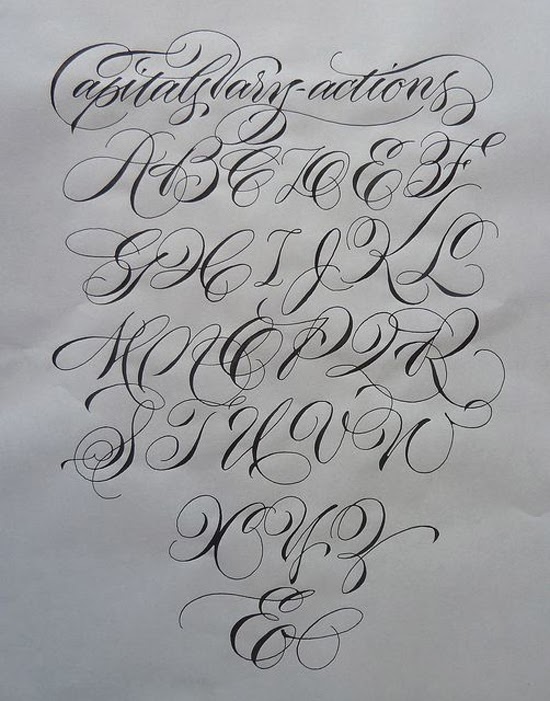 Capitals Vary-actions
A B C D E F
G H I J K L
M N O P Q R
S T U V W
X Y Z
&